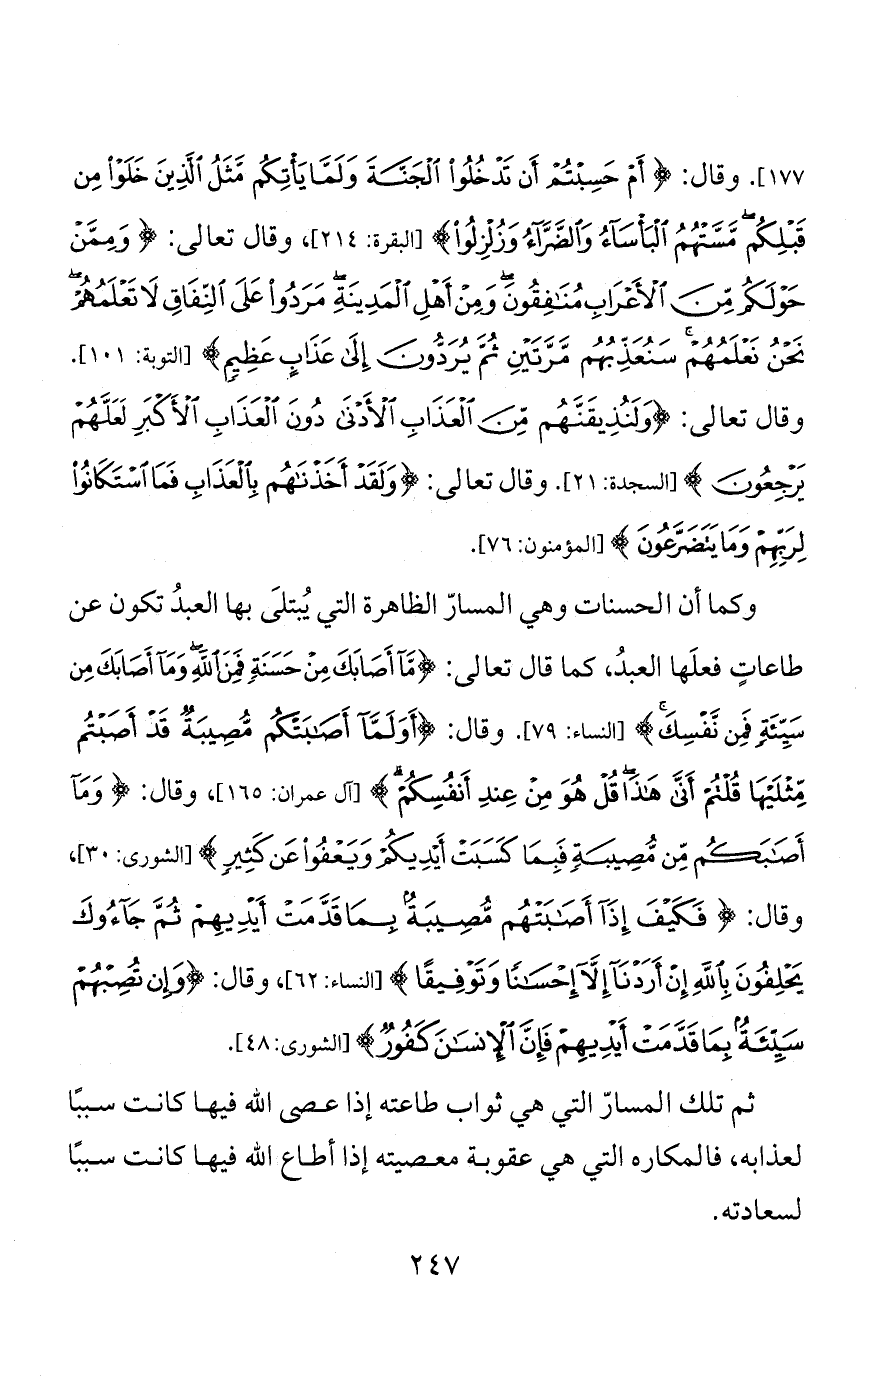 ١٧٧]. وقال: ﴿ أَمْ حَسِبْتُمْ أَن تَدْخُلُوا۟ ٱلْجَنَّةَ وَلَمَّا يَأْتِكُم مَّثَلُ ٱلَّذِينَ خَلَوْا۟ مِن
قَبْلِكُم ۖ مَّسَّتْهُمُ ٱلْبَأْسَآءُ وَٱلضَّرَّآءُ وَزُلْزِلُوا۟﴾ [البقرة: ٢١٤]، وقال تعالى: ﴿ وَمِمَّنْ
حَوْلَكُم مِّنَ ٱلْأَعْرَابِ مُنَـٰفِقُونَ ۖ وَمِنْ أَهْلِ ٱلْمَدِينَةِ ۖ مَرَدُوا۟ عَلَى ٱلنِّفَاقِ لَا تَعْلَمُهُمْ ۖ
نَحْنُ نَعْلَمُهُمْ ۚ سَنُعَذِّبُهُم مَّرَّتَيْنِ ثُمَّ يُرَدُّونَ إِلَىٰ عَذَابٍ عَظِيمٍ﴾ [التوبة: ١٠١].
وقال تعالى: ﴿وَلَنُذِيقَنَّهُم مِّنَ ٱلْعَذَابِ ٱلْأَدْنَىٰ دُونَ ٱلْعَذَابِ ٱلْأَكْبَرِ لَعَلَّهُمْ
يَرْجِعُونَ ﴾ [السجدة: ٢١]. وقال تعالى: ﴿وَلَقَدْ أَخَذْنَـٰهُم بِٱلْعَذَابِ فَمَا ٱسْتَكَانُوا۟
لِرَبِّهِمْ وَمَا يَتَضَرَّعُونَ ﴾ [المؤمنون: ٧٦].
وكما أن الحسنات وهي المسارّ الظاهرة التي يُبتلَى بها العبدُ تكون عن
طاعاتٍ فعلَها العبدُ، كما قال تعالى: ﴿مَّآ أَصَابَكَ مِنْ حَسَنَةٍ فَمِنَ ٱللَّهِ ۖ وَمَآ أَصَابَكَ مِن
سَيِّئَةٍ فَمِن نَّفْسِكَ ۚ﴾ [النساء: ٧٩]. وقال: ﴿أَوَلَمَّآ أَصَـٰبَتْكُم مُّصِيبَةٌ قَدْ أَصَبْتُم
مِّثْلَيْهَا قُلْتُمْ أَنَّىٰ هَـٰذَا ۖ قُلْ هُوَ مِنْ عِندِ أَنفُسِكُمْ ۗ﴾ [آل عمران: ١٦٥]، وقال: ﴿ وَمَآ
أَصَـٰبَكُم مِّن مُّصِيبَةٍ فَبِمَا كَسَبَتْ أَيْدِيكُمْ وَيَعْفُوا۟ عَن كَثِيرٍ ﴾ [الشورى: ٣٠]،
وقال: ﴿ فَكَيْفَ إِذَآ أَصَـٰبَتْهُم مُّصِيبَةٌۢ بِمَا قَدَّمَتْ أَيْدِيهِمْ ثُمَّ جَآءُوكَ
يَحْلِفُونَ بِٱللَّهِ إِنْ أَرَدْنَآ إِلَّآ إِحْسَـٰنًا وَتَوْفِيقًا ﴾ [النساء: ٦٢]، وقال: ﴿وَإِن تُصِبْهُمْ
سَيِّئَةٌۢ بِمَا قَدَّمَتْ أَيْدِيهِمْ فَإِنَّ ٱلْإِنسَـٰنَ كَفُورٌ ﴾ [الشورى: ٤٨].
ثم تلك المسارّ التي هي ثواب طاعته إذا عصى الله فيها كانت سببًا
لعذابه، فالمكاره التي هي عقوبة معصيته إذا أطاع الله فيها كانت سببًا
لسعادته.
٢٤٧